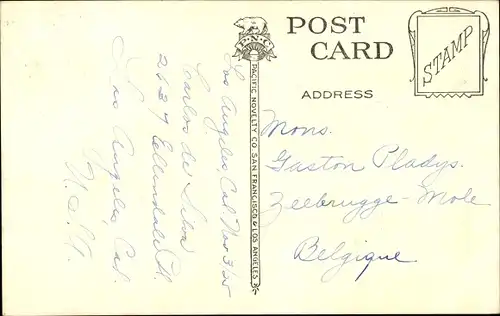 POST
CARD
STAMP
P.N.C.
ADDRESS
PACIFIC NOVELTY CO. SAN FRANCISCO & LOS ANGELES
Los Angeles, Cal. Nov 3/25
Carlos de Silva
2627 Ellendale Pl.
Los Angeles, Cal.
Mons.
Gaston Pladys.
Zeebrugge-Mole
Belgique.